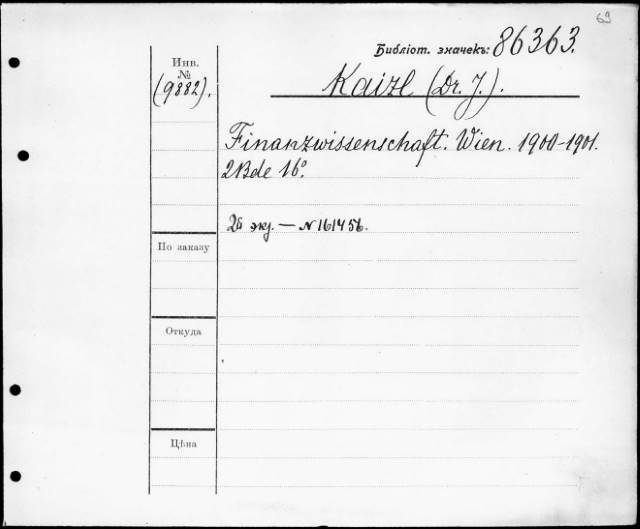 69
Библіот. значекъ: 86363.
Инв.
№
(9882).
Kaizl (Dr. J.).
Finanzwissenschaft. Wien. 1900-1901.
2 Bde 16°.
2й экз. — N 161456.
По заказу
Откуда
Цѣна